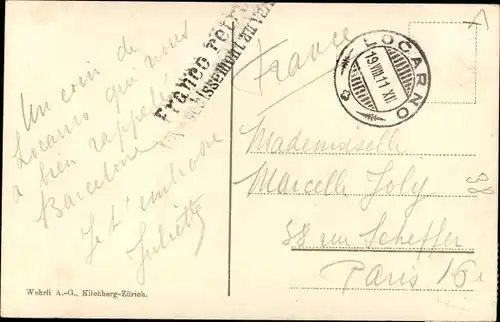 Un coin de
Locarno qui nous
a bien rappelé
Barcelone
Je t'embrasse
Juliette
Wehrli A.-G., Kilchberg-Zürich.
Franco
LOCARNO
19.VIII.11.XII
France
Mademoiselle
Marcelle Joly
38 rue Scheffer
Paris 16
38